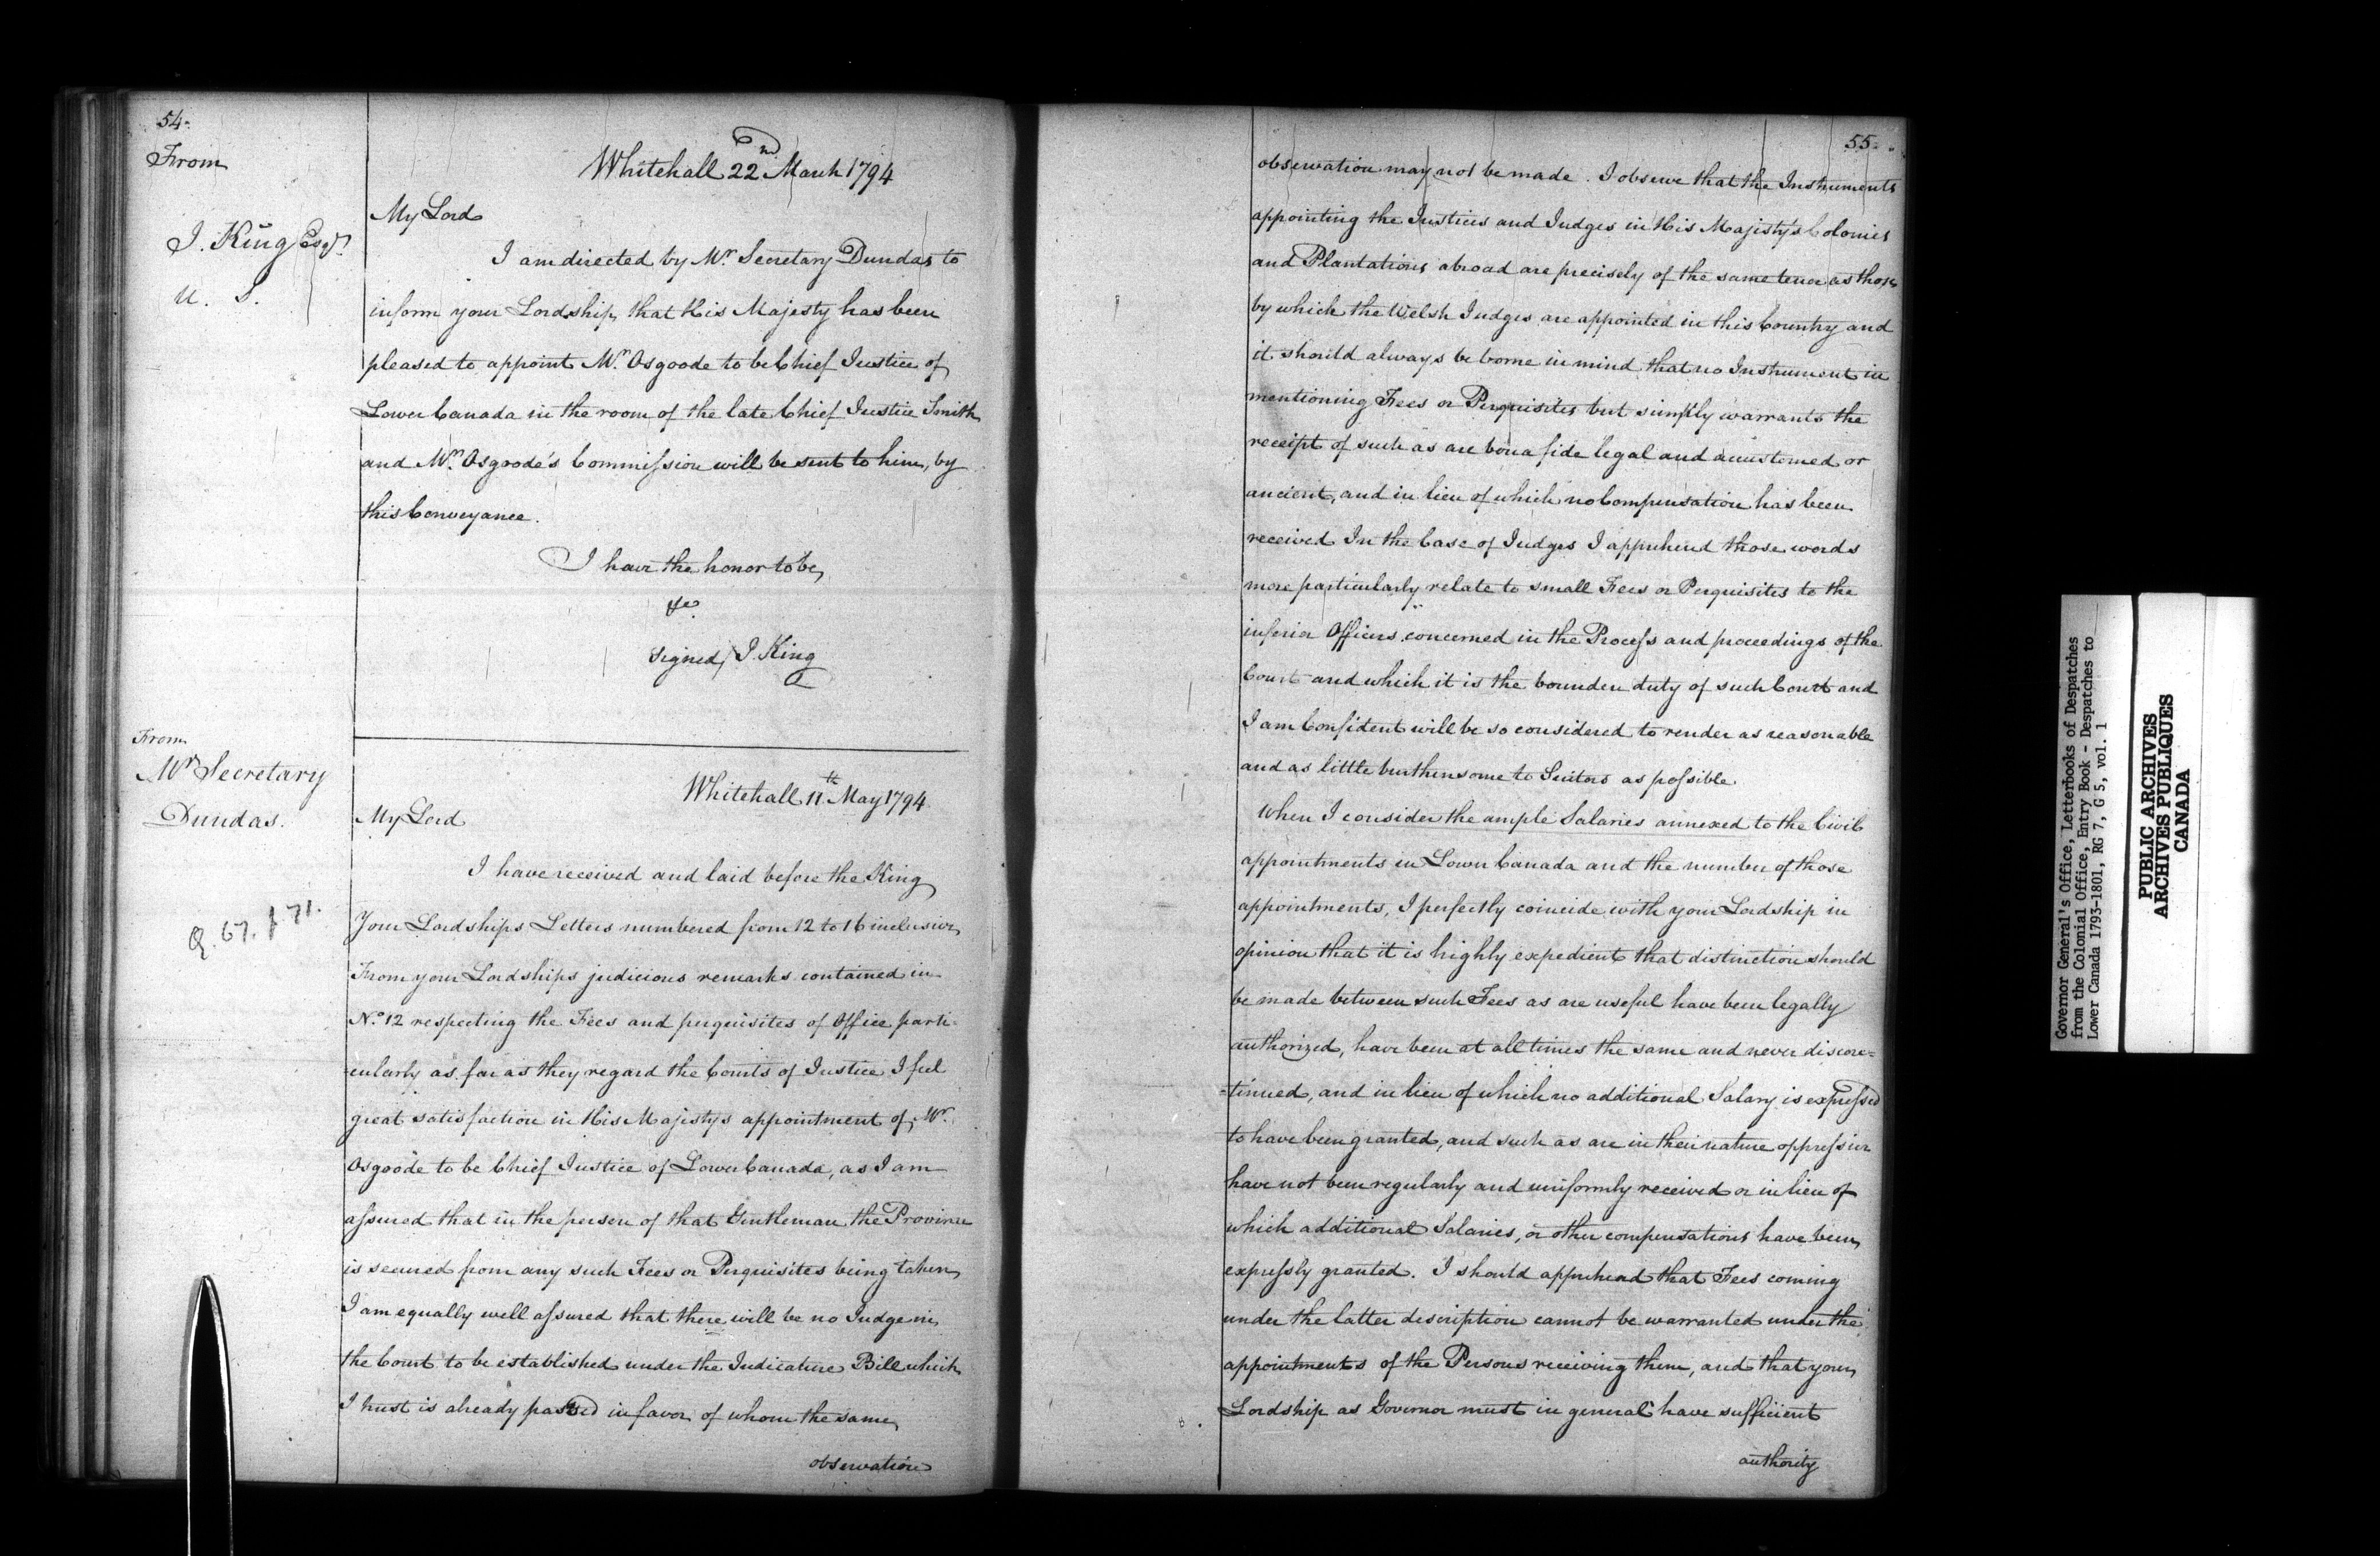 54.
From
J. King Esqr.
U. S.
Whitehall 22nd March 1794
My Lord
I am directed by Mr. Secretary Dundas to
inform your Lordship, that His Majesty has been
pleased to appoint Mr. Osgoode to be Chief Justice of
Lower Canada in the room of the late Chief Justice Smith
and Mr. Osgoode's Commission will be sent to him, by
this Conveyance.
I have the honor to be,
&c.
signed, J. King
From
Mr. Secretary
Dundas.
Q. 67. p 71.
Whitehall 11th May 1794.
My Lord
I have received and laid before the King
Your Lordships Letters numbered from 12 to 16 inclusive,
From your Lordships judicious remarks contained in
No. 12 respecting the Fees and perquisites of Office parti-
-cularly as far as they regard the Courts of Justice I feel
great satisfaction in His Majestys appointment of Mr.
Osgoode to be Chief Justice of Lower Canada, as I am
assured that in the person of that Gentleman the Province
is secured from any such Fees or Perquisites being taken,
I am equally well assured that there will be no Judge in
the Court to be established under the Judicature Bill which
I trust is already passed in favor of whom the same
observation
55.
observation may not be made. I observe that the Instruments
appointing the Justices and Judges in His Majesty's Colonies
and Plantations abroad are precisely of the same tenor as those
by which the Welsh Judges are appointed in this Country and
it should always be borne in mind that no Instrument in
mentioning Fees or Perquisites but simply warrants the
receipt of such as are bona fide legal and accustomed or
ancient, and in lieu of which no Compensation has been
received In the Case of Judges I apprehend those words
more particularly relate to small Fees or Perquisites to the
inferior Officers concerned in the Process and proceedings of the
Court and which it is the bounden duty of such Court and
I am Confident will be so considered to render as reasonable
and as little burthensome to Suitors as possible.
When I consider the ample Salaries annexed to the Civil
appointments in Lower Canada and the number of those
appointments, I perfectly coincide with your Lordship in
opinion that it is highly expedient that distinction should
be made between such Fees as are useful have been legally
authorized, have been at all times the same and never discon=
=tinued, and in lieu of which no additional Salary is expressed
to have been granted, and such as are in their nature oppressive
have not been regularly and uniformly received or in lieu of
which additional Salaries, or other compensations have been
expressly granted. I should apprehend that Fees coming
under the latter description cannot be warranted under the
appointments of the Persons receiving them, and that your
Lordship as Governor must in general have sufficient
authority
Governor General's Office, Letterbooks of Despatches
from the Colonial Office, Entry Book - Despatches to
Lower Canada 1793-1801, RG 7, G 5, vol. 1
PUBLIC ARCHIVES
ARCHIVES PUBLIQUES
CANADA